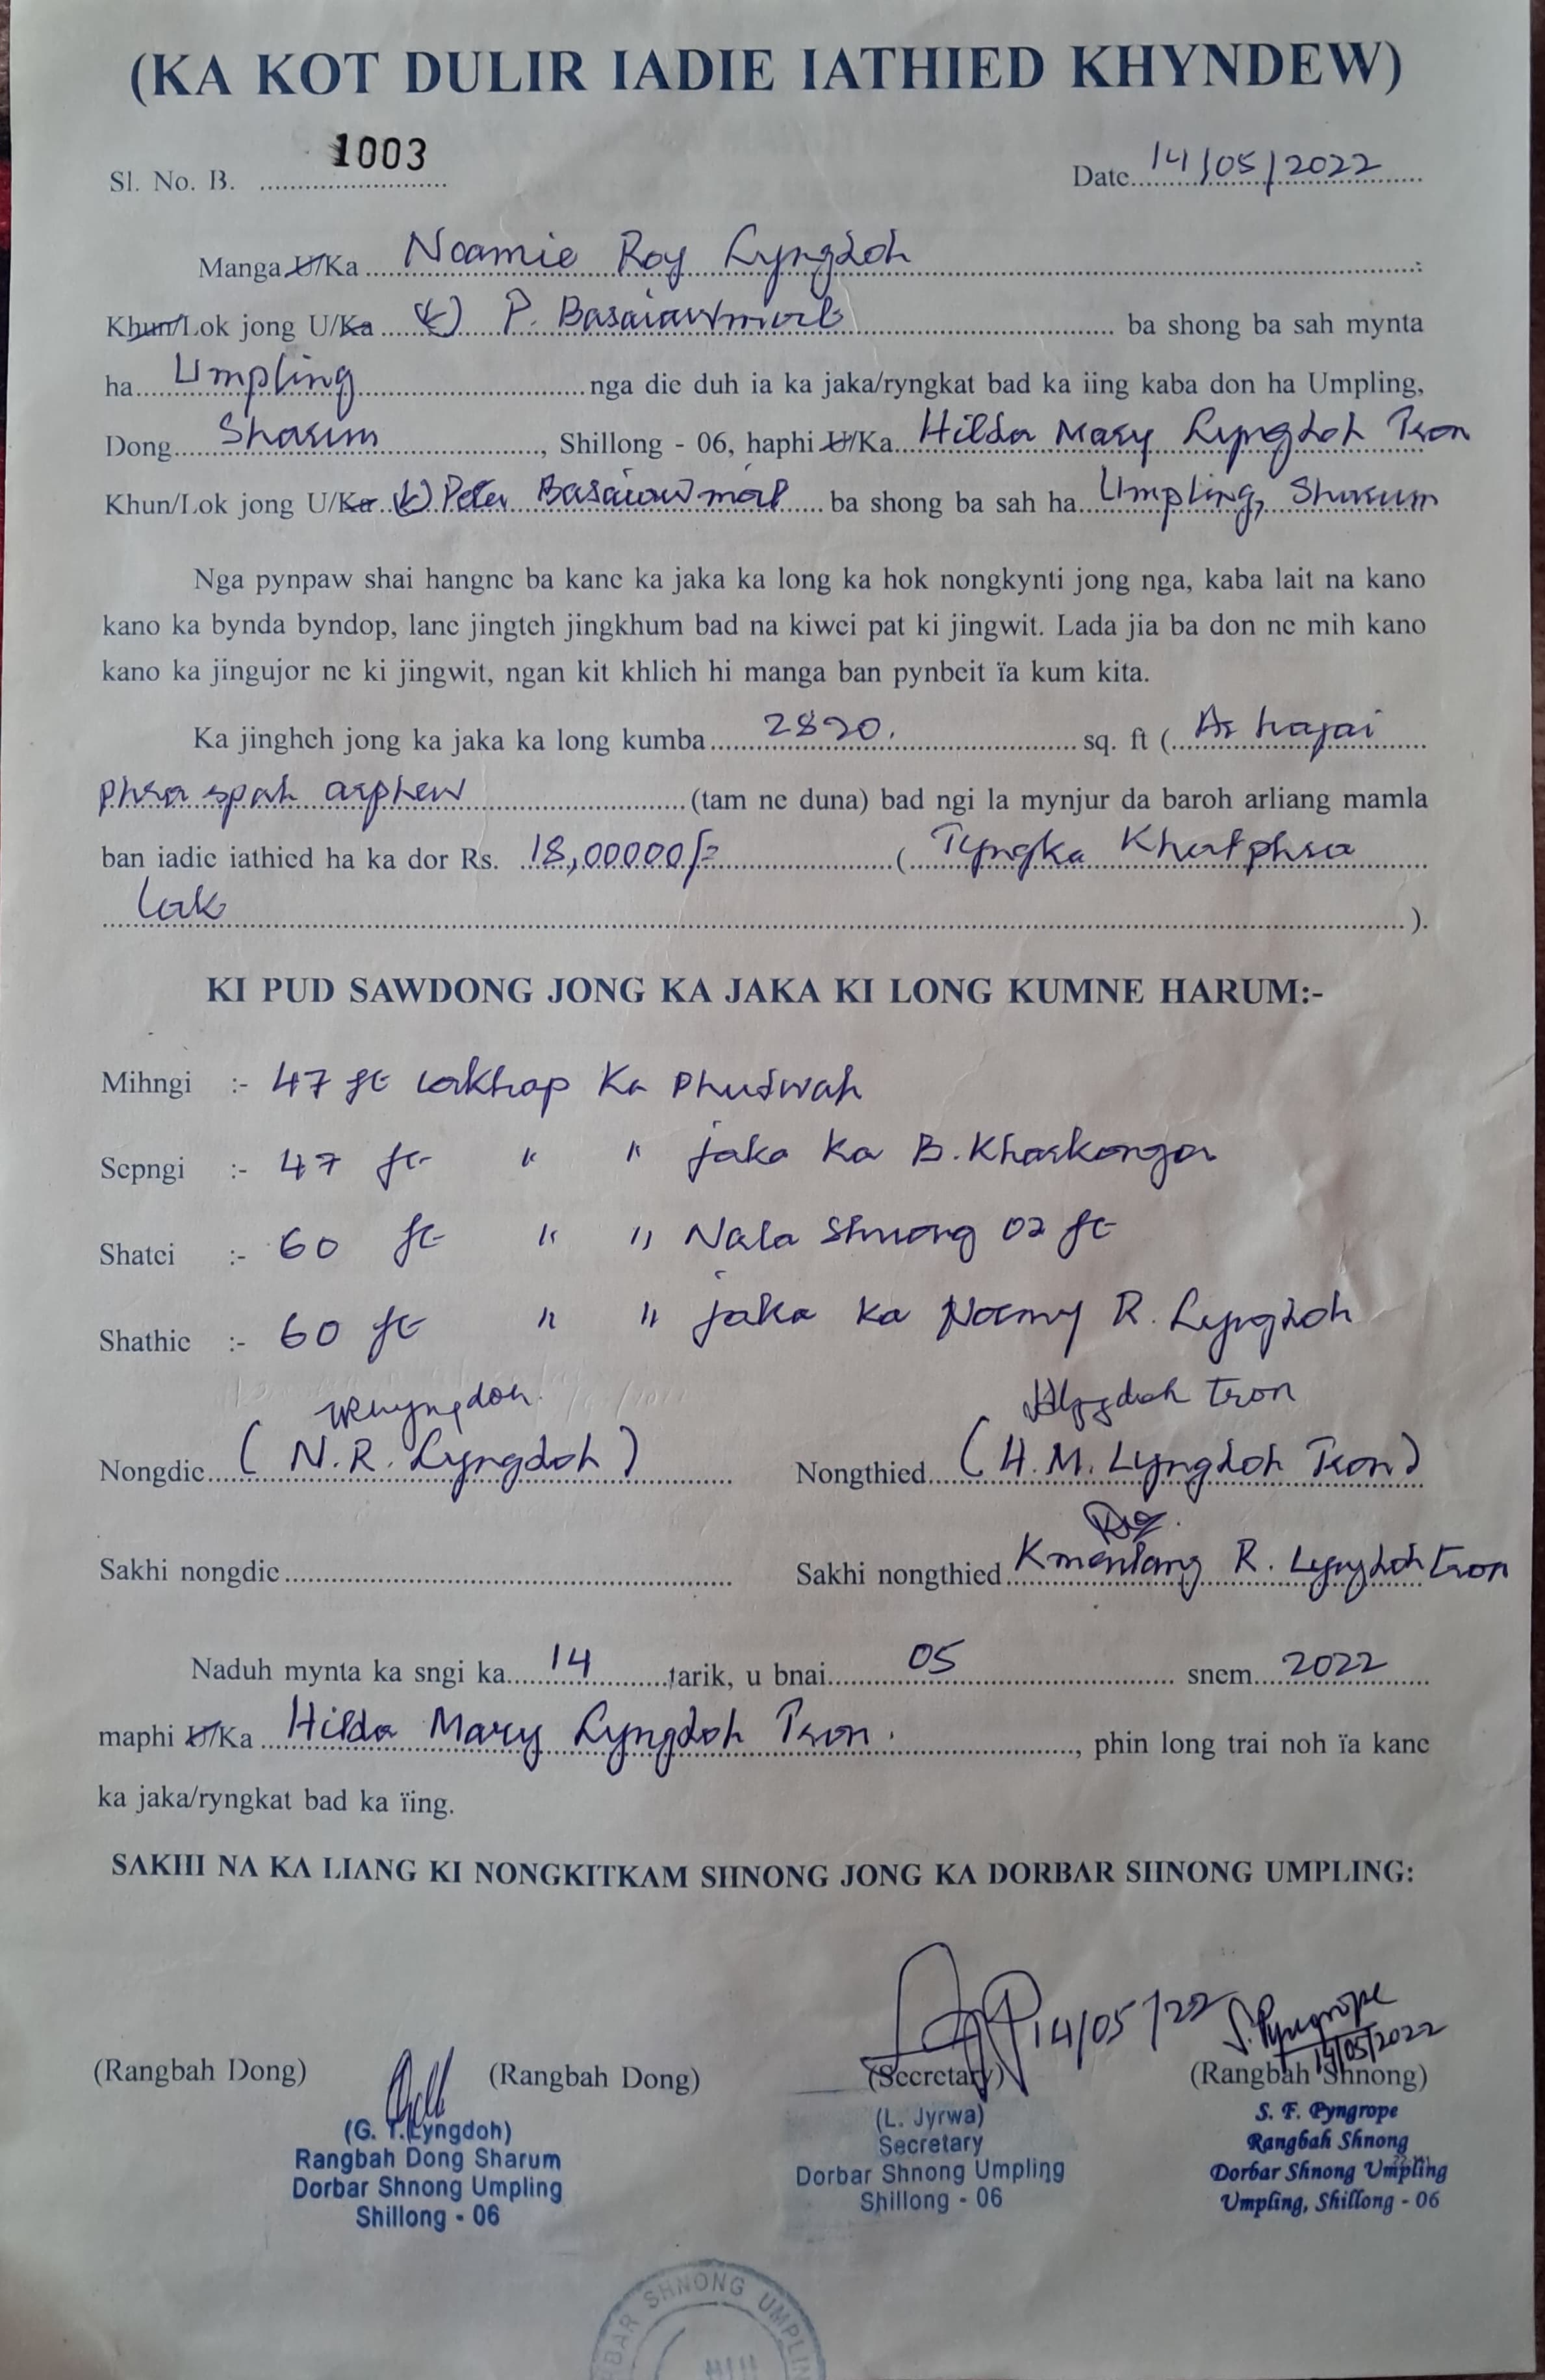 (KA KOT DULIR IADIE IATHIED KHYNDEW)
Sl. No. B. 1003 Date 14/05/2022
Manga U/Ka Noamie Roy Lyngdoh
Khun/Lok jong U/Ka (L) P. Basaiawmoit ba shong ba sah mynta
ha Umpling nga die duh ia ka jaka/ryngkat bad ka iing kaba don ha Umpling,
Dong Sharum, Shillong - 06, haphi U/Ka Hilda Mary Lyngdoh Tron
Khun/Lok jong U/Ka (L) Peter Basaiawmoit ba shong ba sah ha Umpling, Sharum
Nga pynpaw shai hangne ba kane ka jaka ka long ka hok nongkynti jong nga, kaba lait na kano
kano ka bynda byndop, lane jingteh jingkhum bad na kiwei pat ki jingwit. Lada jia ba don ne mih kano
kano ka jingujor ne ki jingwit, ngan kit khlieh hi manga ban pynbeit ïa kum kita.
Ka jingheh jong ka jaka ka long kumba 2820. sq. ft (Ar hajai
phra spah arphew (tam ne duna) bad ngi la mynjur da baroh arliang mamla
ban iadie iathied ha ka dor Rs. 18,00000/= (Tyngka Khatphra
lak ).
KI PUD SAWDONG JONG KA JAKA KI LONG KUMNE HARUM:-
Mihngi :- 47 ft wakhap Ka Phutwah
Sepngi :- 47 ft " " jaka Ka B. Kharkongor
Shatei :- 60 ft " " Nala Shnong 02 ft
Shathie :- 60 ft " " jaka ka Noemy R. Lyngdoh
NRLyngdoh. HMLyngdoh Tron
Nongdie (N.R. Lyngdoh) Nongthied (H.M. Lyngdoh Tron)
Sakhi nongdie Sakhi nongthied Kmenlang R. Lyngdoh Tron
Naduh mynta ka sngi ka 14 tarik, u bnai 05 snem 2022
maphi U/Ka Hilda Mary Lyngdoh Tron., phin long trai noh ïa kane
ka jaka/ryngkat bad ka ïing.
SAKHI NA KA LIANG KI NONGKITKAM SHNONG JONG KA DORBAR SHNONG UMPLING:
14/05/22 S. Pyngrope
14/05/2022
(Rangbah Dong) (Rangbah Dong) (Secretary) (Rangbah Shnong)
(G. T. Lyngdoh)
Rangbah Dong Sharum
Dorbar Shnong Umpling
Shillong - 06
(L. Jyrwa)
Secretary
Dorbar Shnong Umpling
Shillong - 06
S. F. Pyngrope
Rangbah Shnong
Dorbar Shnong Umpling
Umpling, Shillong - 06
SHNONG UMPLIN